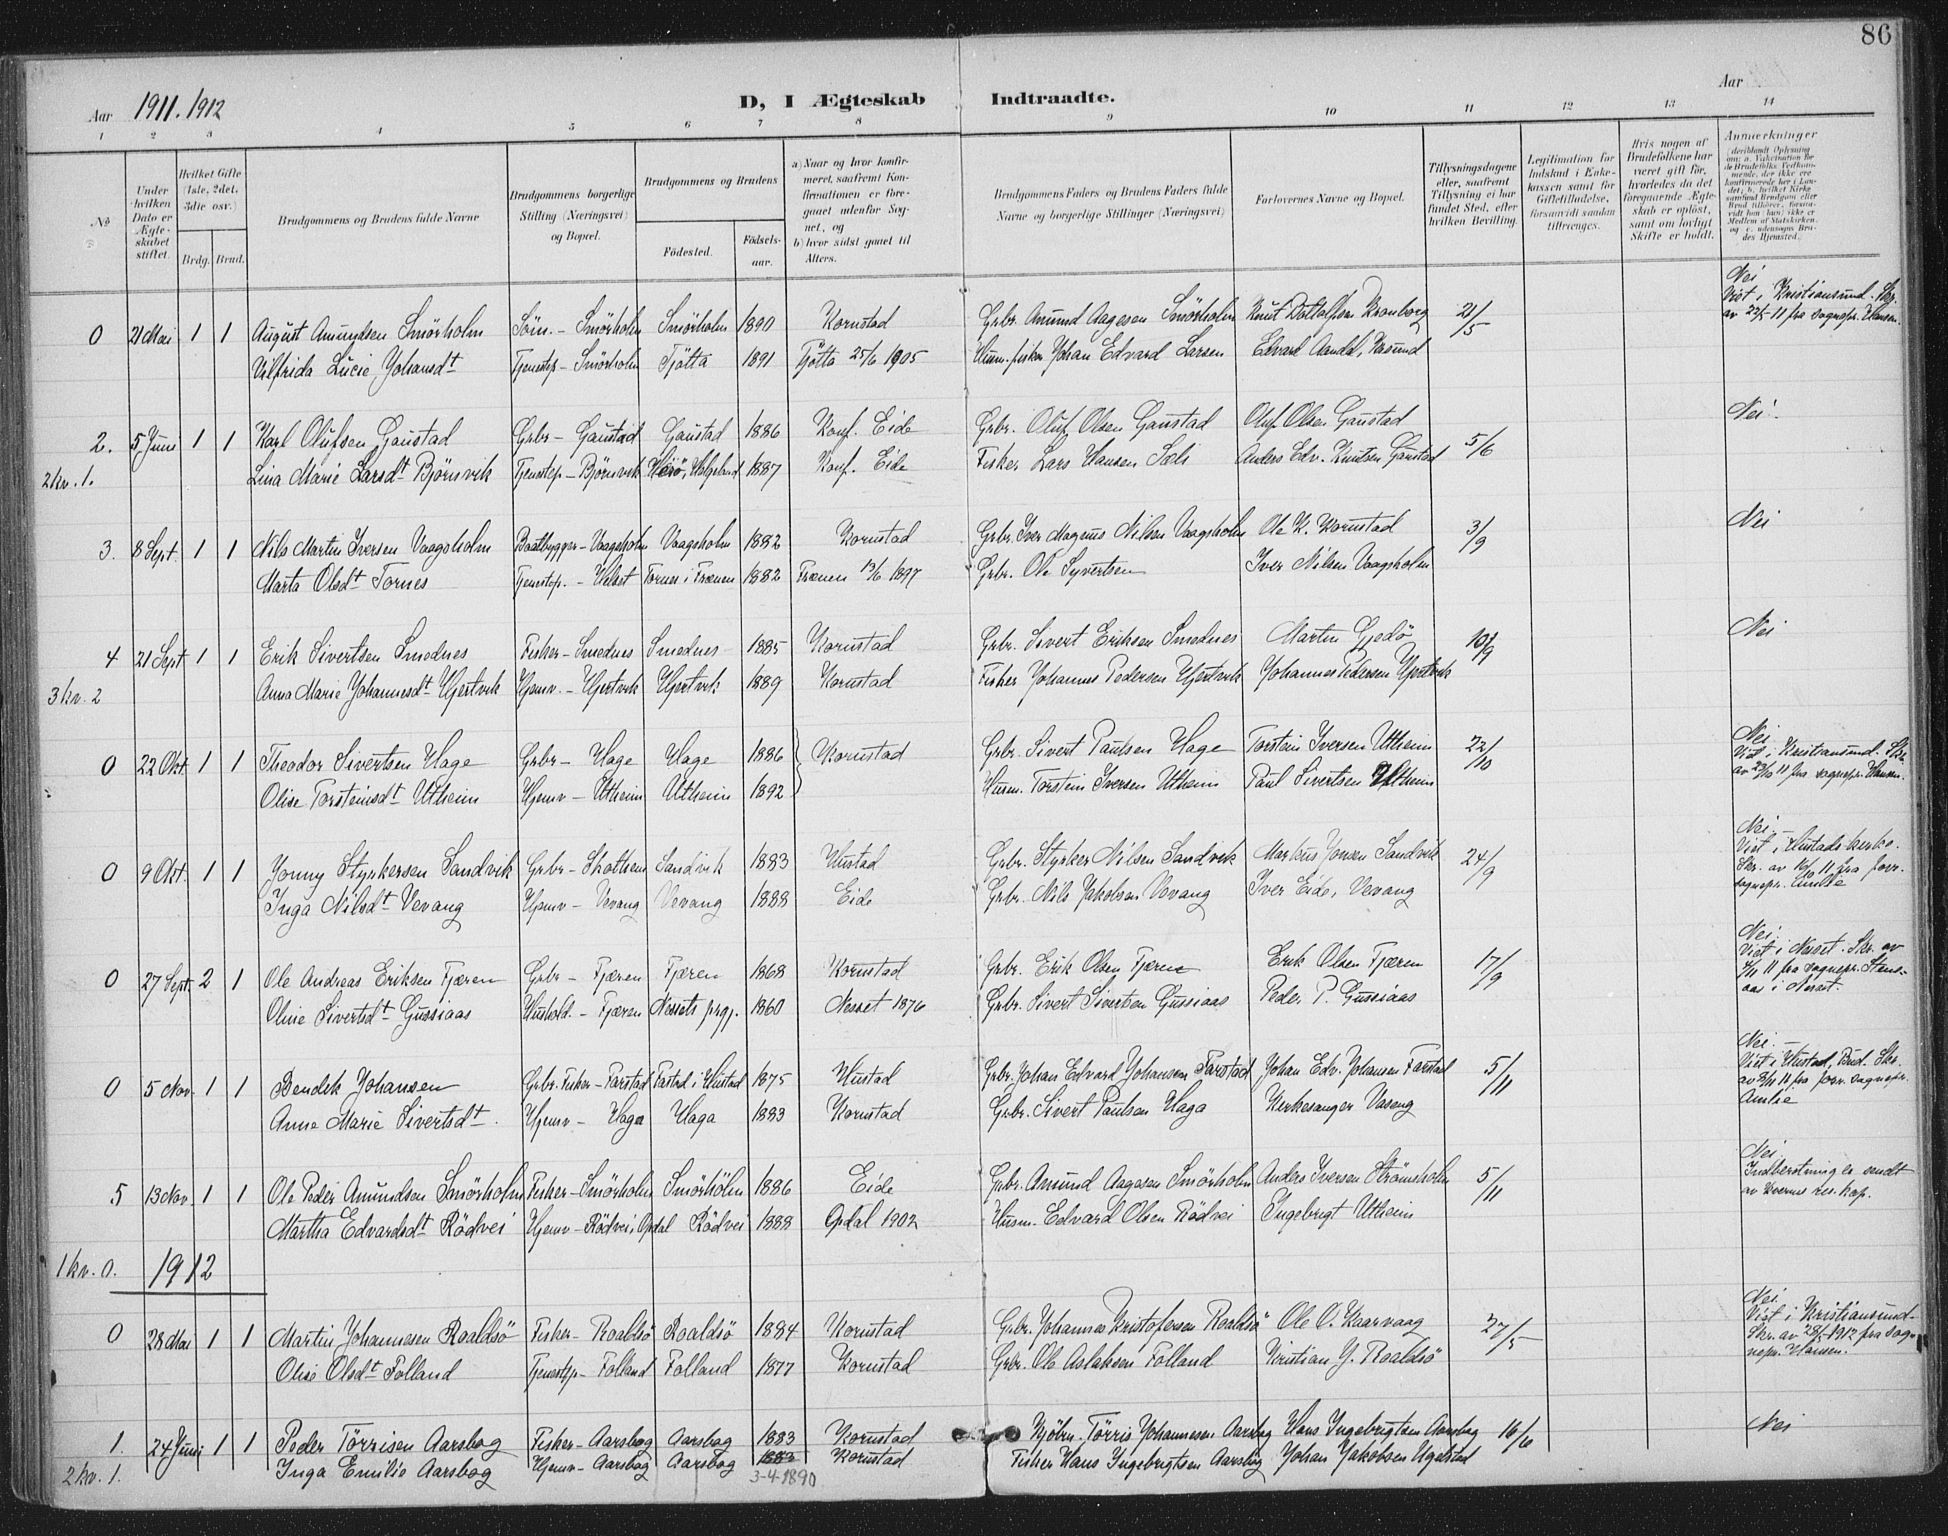 86
Aar 1911. 1912
D, I Ægteskab Indtraadte.
Aar
1 2 3 4 5 6 7 8 9 10 11 12 13 14
No
Under hvilken Dato er Ægteskabet stiftet.
Hvilket Gifte (1ste, 2det, 3die osv.)
Brdg. Brud.
Brudgommens og Brudens fulde Navne
Brudgommens borgerlige Stilling (Næringsvei) og Bopæl.
Brudgommens og Brudens
Födested. Födselsaar.
a) Naar og hvor konfirmeret, saafremt Konfirmationen er foregaaet udenfor Sognet, og
b) hvor sidst gaaet til Alters.
Brudgommens Faders og Brudens Faders fulde Navne og borgerlige Stillinger (Næringsvei)
Forlovernes Navne og Bopæl.
Tillysningsdagene eller, saafremt Tillysning ei har fundet Sted, efter hvilken Bevilling.
Legitimation for Indskud i Enkekassen samt for Giftetilladelse, forsaavidt saadan tiltrænges.
Hvis nogen af Brudefolkene har været gift før, hvorledes da det foregaaende Ægteskab er oplöst, samt om lovligt Skifte er holdt.
Anmerkninger
0 21 Mai 1 1 August Amundsen Smörholm Sön. - Smörholm Smörholm 1890 Kornstad Grbr. Amund Aagesen Smörholm 21/5 Nei
Vilfrida Lucie Johansdt Tjenestep - Smörholm Tjötta 1891 Tjötta 25/6 1905 Husm. fisker Johan Edvard Larsen Edvard Aandal, Krsund Viet i Kristiansund. Skr. av 22/5 11 fra sognepr. Hansen.
2. 5 Juni 1 1 Karl Olufsen Gaustad Grbr - Gaustad Gaustad 1886 Konf. Eide Grbr. Oluf Olsen Gaustad Oluf Olsen Gaustad 5/6 Nei.
2 kv. 1. Lina Marie Larsdt Björnsvik Tjenestep - Björnsvik Herö, Helgeland 1887 Konf. Eide Fisker Lars Hansen Anders Edv. Knutsen Gaustad
3. 8 Sept. 1 1 Nils Martin Iversen Vaagsholm Baatbygger - Vaagsholm Vaagsholm 1882 Kornstad Grbr. Iver Magnus Nilsen Vaagsholm Ole K. Kornstad 3/9 Nei
Marta Olsdt Tornes Tjenestep. - Tornes i Frænen 1882 Frænen 13/6 1897 Grbr. Ole Syvertsen Iver Nilsen Vaagsholm
4 21 Sept 1 1 Erik Sivertsen Smednes Fisker - Smednes Smednes 1885 Kornstad Grbr. Sivert Eriksen Smednes Martin Gjedö 10/9 Nei
3 kv. 2 Anna Marie Johannesdt Hjertvik Hjemv. - Hjertvik Hjertvik 1889 Kornstad Fisker Johannes Pedersen Hjertvik Johannes Pedersen Hjertvik
0 22 Okt. 1 1 Theodor Sivertsen Hage Grbr - Hage Hage 1886 Kornstad Grbr. Sivert Paulsen Hage Torstein Iversen Utheim 22/10 Nei.
Olise Torsteinsdt Utheim Hjemv - Utheim Utheim 1892 Husm. Torstein Iversen Utheim Paul Sivertsen Utheim Viet i Kristiansund. Skr. av 23/10 11 fra sognepr. Hansen.
0 9 Okt. 1 1 Jonny Styrkersen Sandvik Grbr - Skotheim Sandvik 1883 Hustad Grbr. Styrker Nilsen Sandvik Markus Jonsen Sandvik 24/9 Nei. -
Inga Nilsdt Vevang Hjemv - Vevang Vevang 1888 Eide Grbr. Nils Jakobsen Vevang Iver Eide, Vevang Viet i Hustads kirke. Skr. av 10/10 11 fra forv. sognepr. Amlie
0 27 Sept. 2 1 Ole Andreas Eriksen Fjæren Grbr - Fjæren Fjæren 1868 Kornstad Grbr. Erik Olsen Fjæren Erik Olsen Fjæren 17/9 Nei.
Oline Sivertsdt Gussiaas Hushold. - Fjæren Nessets prgj. 1860 Nesset 1876 Grbr. Sivert Sivertsen Gussiaas Peder P. Gussiaas Viet i Nesset. Skr. av 4/11 11 fra sognepr. Stensaas i Nesset.
0 5 Nov. 1 1 Bendik Johansen Grbr. Fisker - Farstad Farstad i Hustad 1875 Hustad Grbr. Johan Edvard Johansen Farstad Johan Edv. Johansen Farstad 5/11 Nei. -
Anne Marie Sivertsdt. Hjemv - Haga Haga 1883 Kornstad Grbr. Sivert Paulsen Haga Kirkesanger Vaseng Viet i Hustad, Bud. Skr. av 8/11 11 fra forv. sognepr. Amlie
5 13 Nov. 1 1 Ole Peder Amundsen Smörholm Fisker - Smörholm Smörholm 1886 Eide Grbr. Amund Aagesen Smörholm Anders Iversen Strömsholm 5/11 Nei
Martha Edvardsdt Rödvei Hjemv - Rödvei, Opdal Rödvei 1888 Opdal 1902 Husm. Edvard Olsen Rödvei Ingebrigt Utheim Indberetning er sendt av Kvernes res. kap.
1 kv. 0. 1912
0 28 Mai 1 1 Martin Johannesen Roaldsö Fisker - Roaldsö Roaldsö 1884 Kornstad Grbr. Johannes Kristofersen Roaldsö Ole O. Kaarvaag 27/5 Nei
Olise Olsdt Folland Tjenestep - Folland Folland 1877 Kornstad Grbr. Ole Aslaksen Folland Kristian J. Roaldsö Viet i Kristiansund. Skr. av 28/5 1912 fra sognepr. Hansen.
1. 24 Juni 1 1 Peder Törrisen Aarsbog Fisker - Aarsbog Aarsbog 1883 Kornstad Kjöbm. Törris Johannesen Aarsbog Hans Ingebrigtsen Aarsbog 16/6 Nei
2 kv. 1. Inga Emilie Aarsbog Hjemv - Aarsbog Aarsbog Kornstad Fisker Hans Ingebrigtsen Aarsbog Johan Jakobsen Ugelstad
3-4-1890